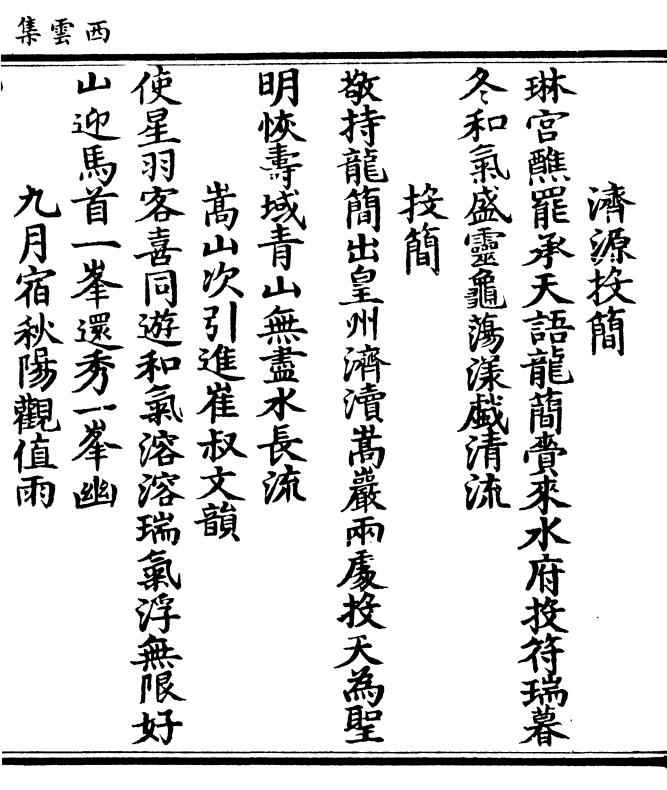 西雲集
濟源投簡
琳宮醮罷承天語龍蕳賫來水府投符瑞暮
冬和氣盛靈龜蕩漾戯清流
投簡
敬持龍簡出皇州濟瀆嵩嚴兩處投天為聖
明恢壽域青山無盡水長流
嵩山次引進崔叔文韻
使星羽客喜同遊和氣溶溶瑞氣浮無限好
山迎馬首一峯還秀一峯幽
九月宿秋陽觀值雨